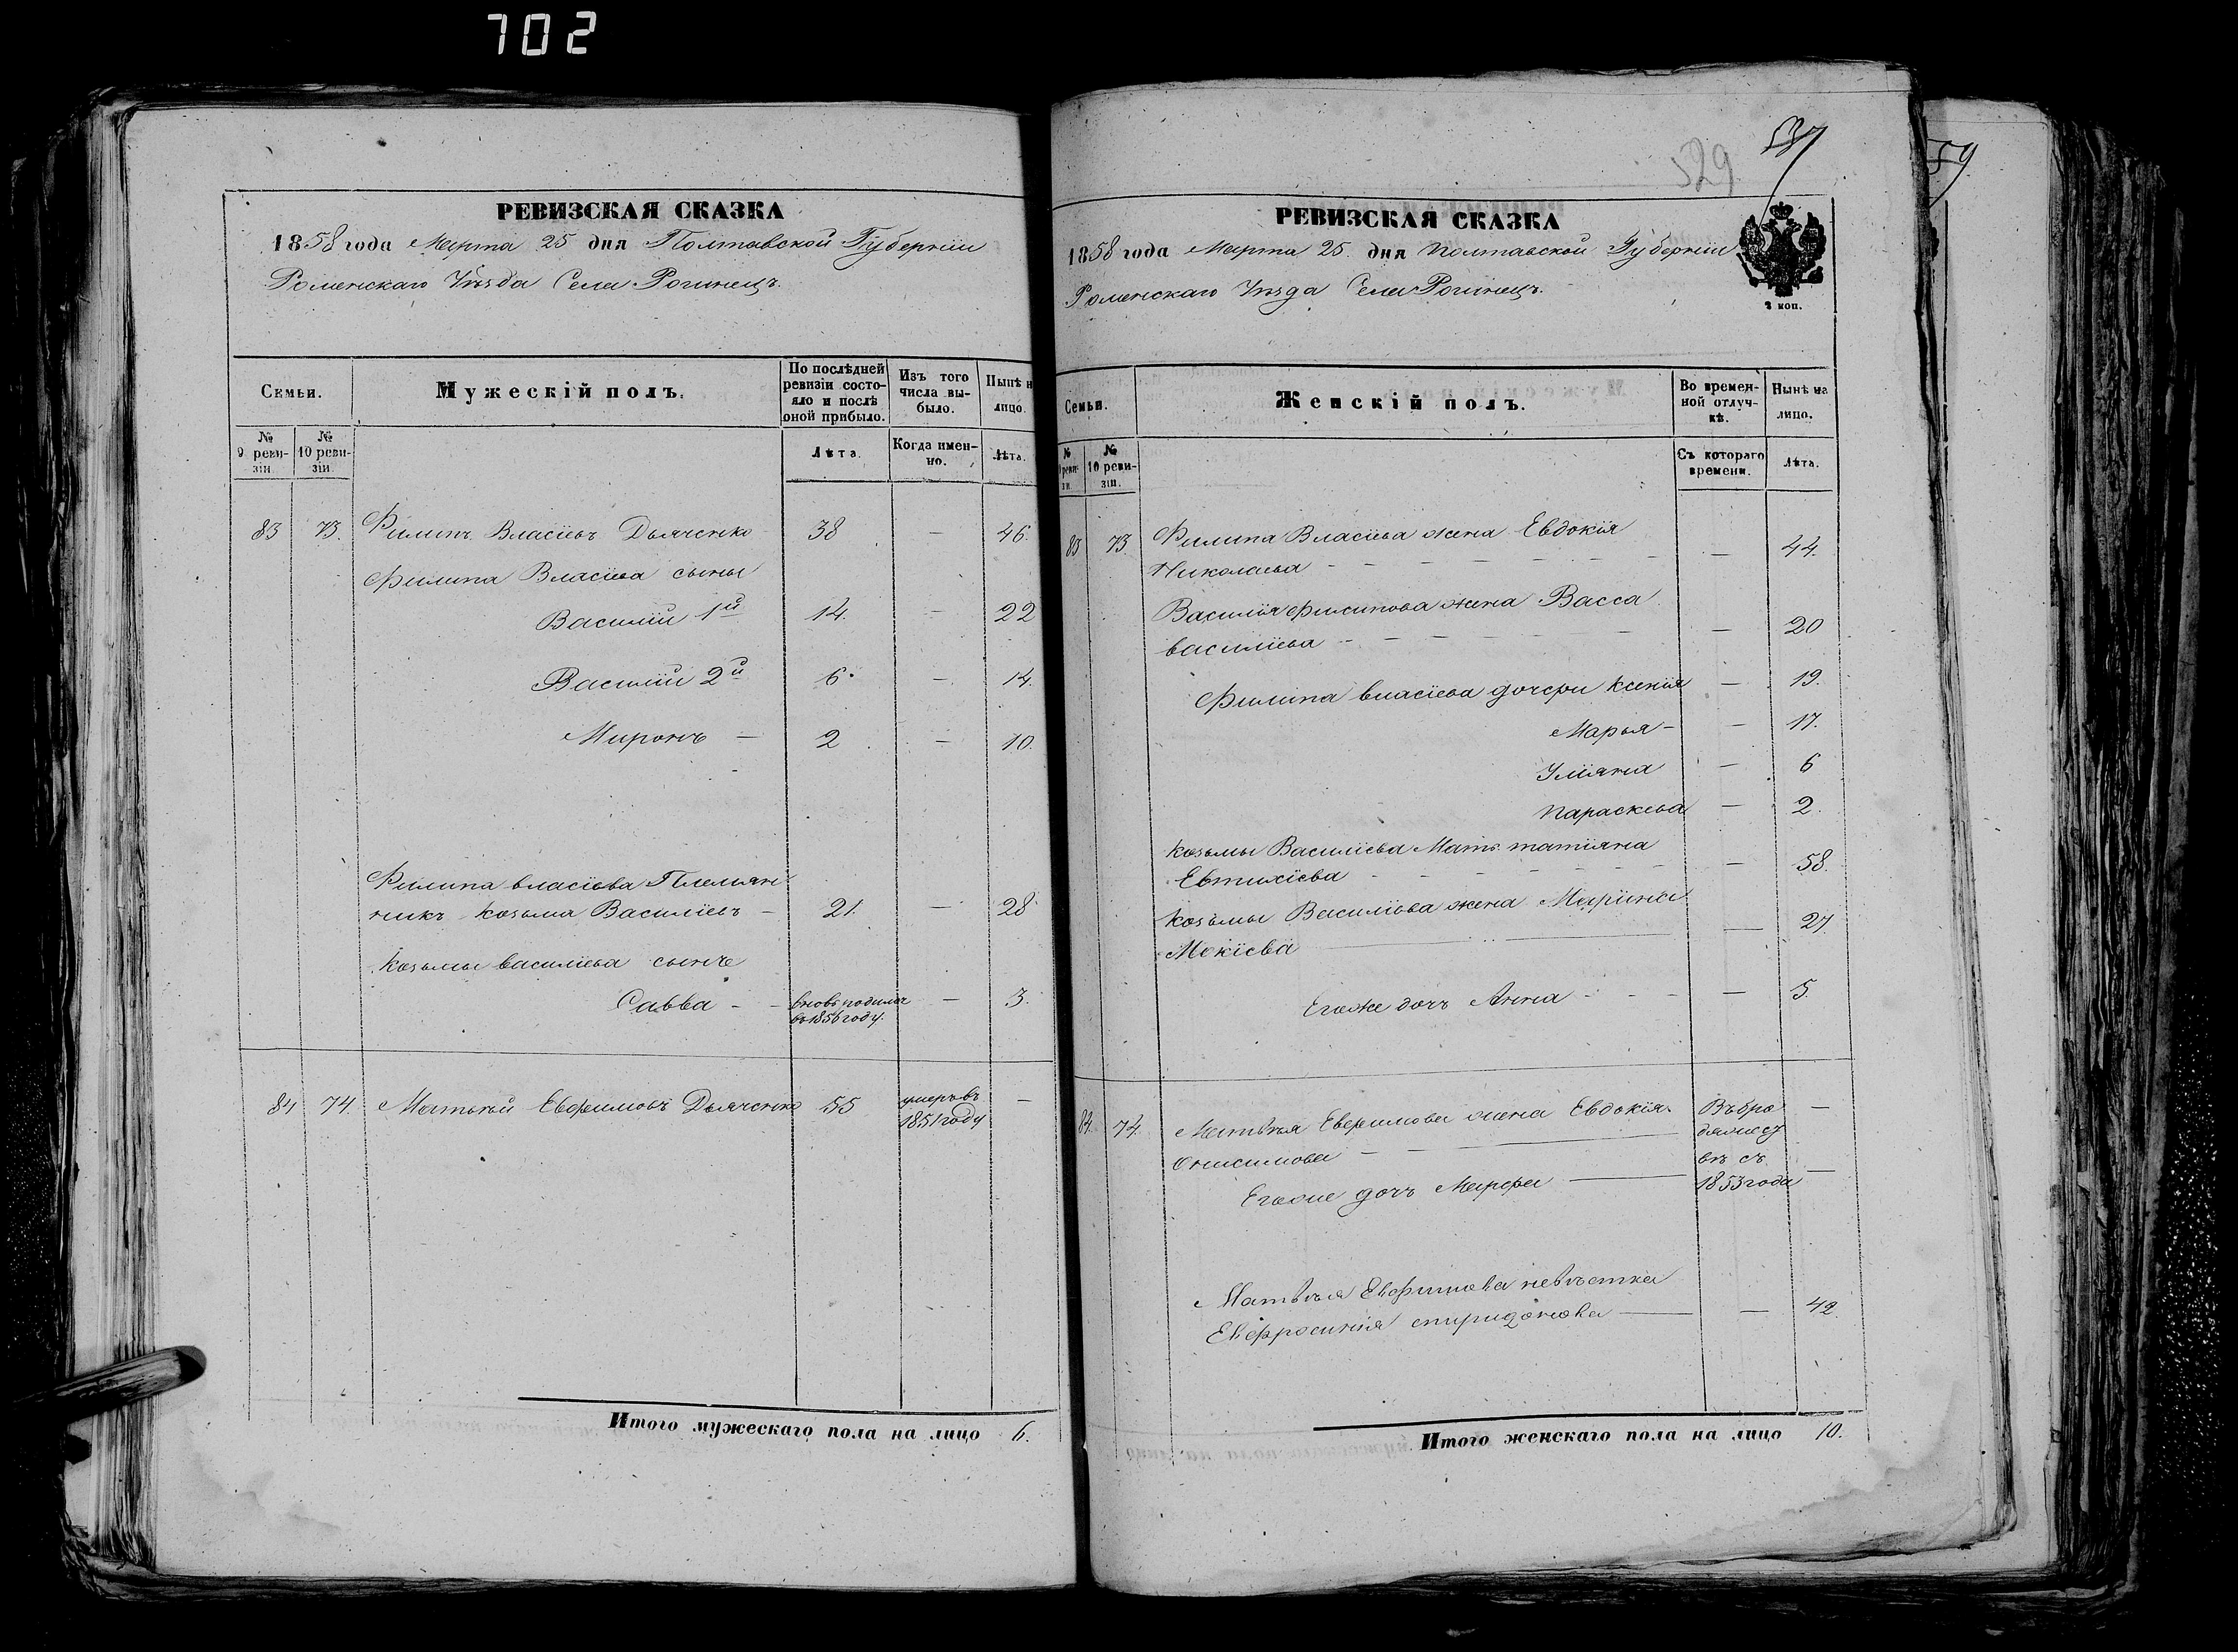 702
РЕВИЗСКАЯ СКАЗКА
1858 года Марта 25 дня Полтавской Губерніи
Роменскаго Уѣзда Села Рогинецъ.
Семьи.
Мужескій полъ.
По послѣдней ревизіи состояло и послѣ оной прибыло.
Изъ того числа выбыло.
Нынѣ н лицо.
№ 9 ревизіи
№ 10 ревизіи.
Лѣта.
Когда именно.
Лѣта.
83 73. Филипъ Власіевъ Дьяченко 38 — 46.
Филипа Власіева сыны
Василій 1й 14. — 22
Василій 2й 6. — 14.
Миронъ — 2 — 10.
Филипа власіева Племян
никъ козьма Василіевъ — 21. — 28
Козьмы василіева сынъ
Савва — вновь родился — 3.
въ 1856 году.
84 74. Матвѣй Евфимовъ Дьяченко 55 умеръ въ —
1851 году
Итого мужескаго пола на лицо 6.
529
537
РЕВИЗСКАЯ СКАЗКА
1858 года Марта 25. дня Полтавской Губерніи
Роменскаго Уѣзда Села Рогинецъ.
3 коп.
Семьи.
Женскій полъ.
Во временной отлучкѣ.
Нынѣ на лицо.
№ 10 ревизіи.
Съ котораго времени.
Лѣта.
83 73. Филипа Власіева жена Евдокія
Николаева — 44.
Василія Филипова жена Васса
василіева — 20
Филипа власіева дочери Ксенія — 19.
Марья — 17.
Уліяна — 6
Параскева — 2.
Козьмы Василіева Мать татіяна
Евтихіева — 58.
Козьмы Василіева жена Марина
Мокіева — 27
Егоже дочъ Анна — 5.
84. 74. Матвѣя Евфимова жена Евдокія Въ бро —
Онисимова дяжест
вѣ съ
Егоже дочъ Марфа 1853 года —
Матвѣя Евфимова невѣстка
Евфросинія спиридонова — 42.
Итого женскаго пола на лицо 10.
59